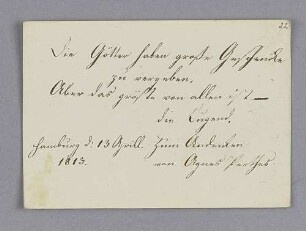 22
Die Götter haben große Geschenke
zu vergeben,
Aber das größte von allen ist —
die Tugend.
Hamburg d. 13 Aprill. Zum Andenken
1813. von Agnes Perthes